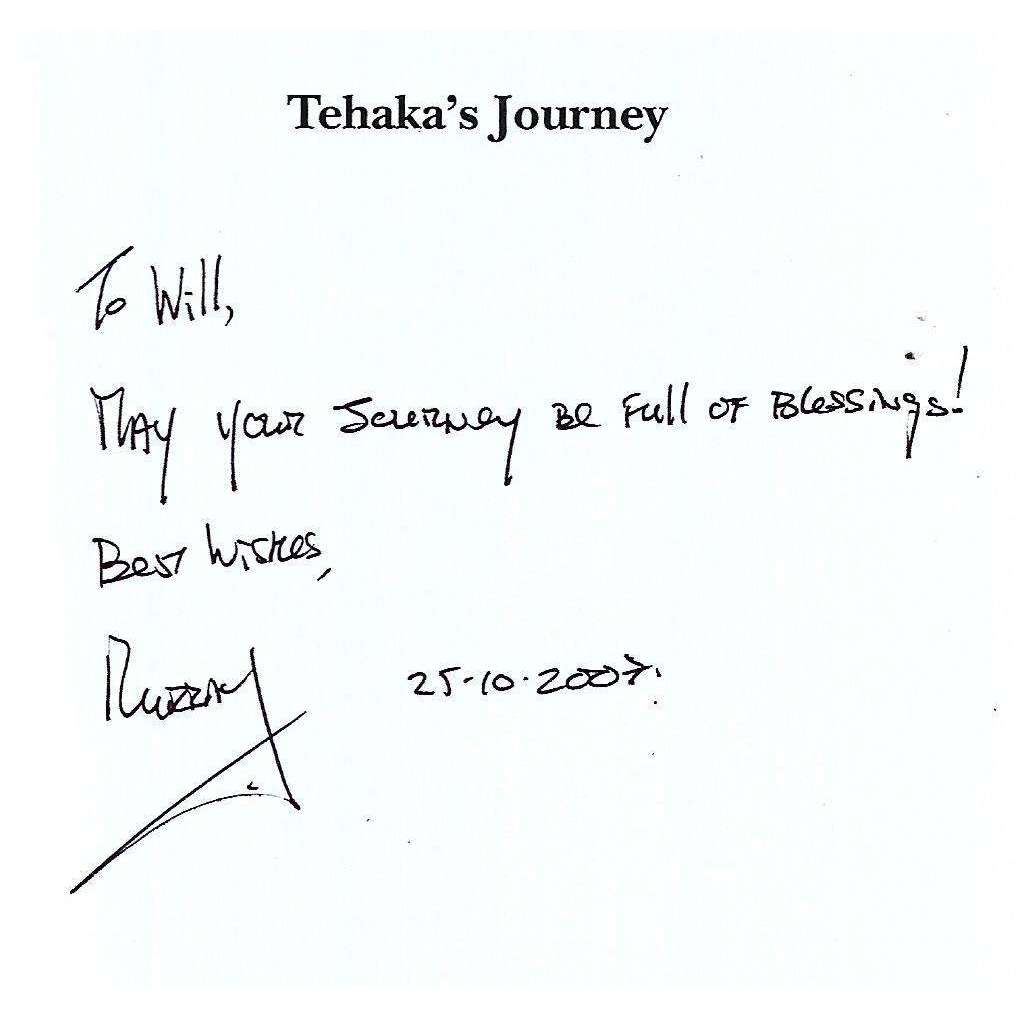 Tehaka's Journey
To Will,
May your Journey Be Full of Blessings!
Best Wishes,
Murray 25.10.2007.